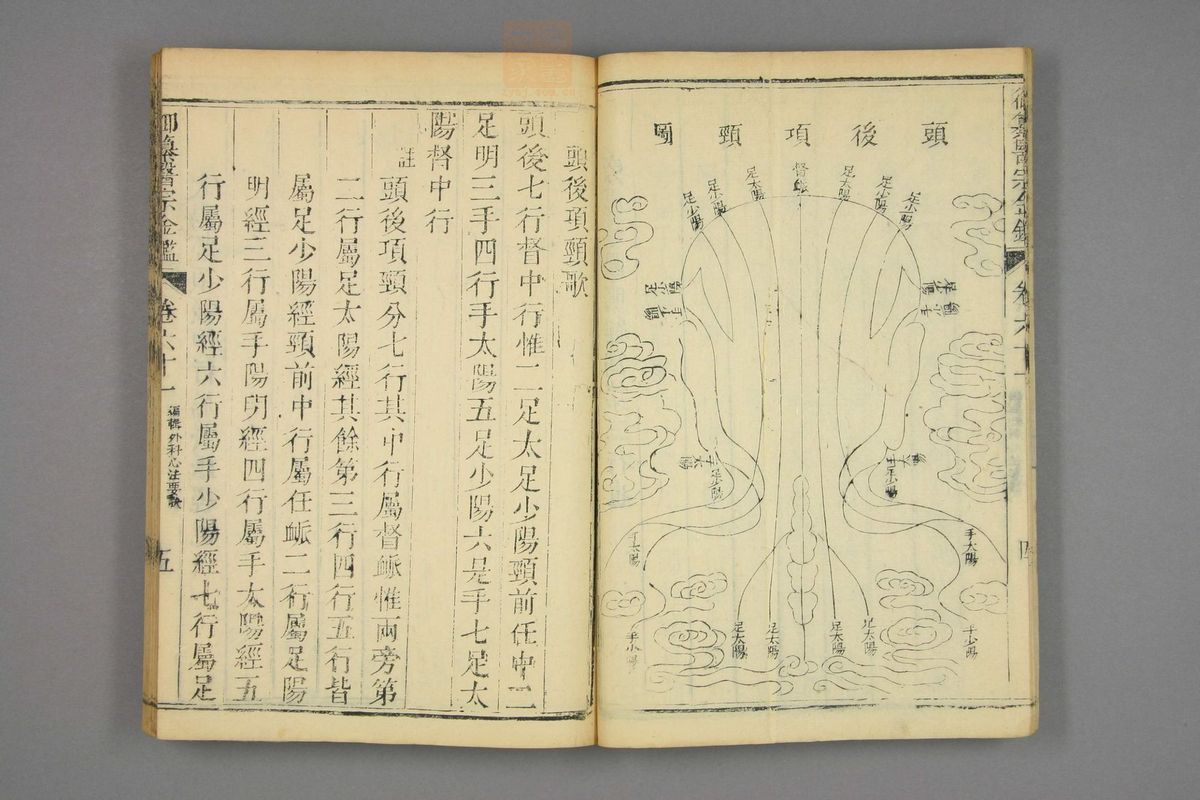 頭後項頸圖
足少陽
足少陽
足太陽
督脈
足太陽
足少陽
足少陽
足少陽
手少陽
足少陽
手少陽
手太陽
足少陽
手太陽
足少陽
手太陽
手太陽
手少陽
足太陽
足太陽
足太陽
足太陽
手少陽
御纂醫宗金鑑
卷六十一
四
頭後項頸歌
頭後七行督中行惟二足太足少陽頸前任中二
足明三手四行手太陽五足少陽六是手七足太
陽督中行
註頭後項頸分七行其中行屬督脈惟兩旁第
二行屬足太陽經其餘第三行四行五行皆
屬足少陽經頸前中行屬任脈二行屬足陽
明經三行屬手陽明經四行屬手太陽經五
行屬足少陽經六行屬手少陽經七行屬足
御纂醫宗金鑑
卷六十一
編輯外科心法要訣
五